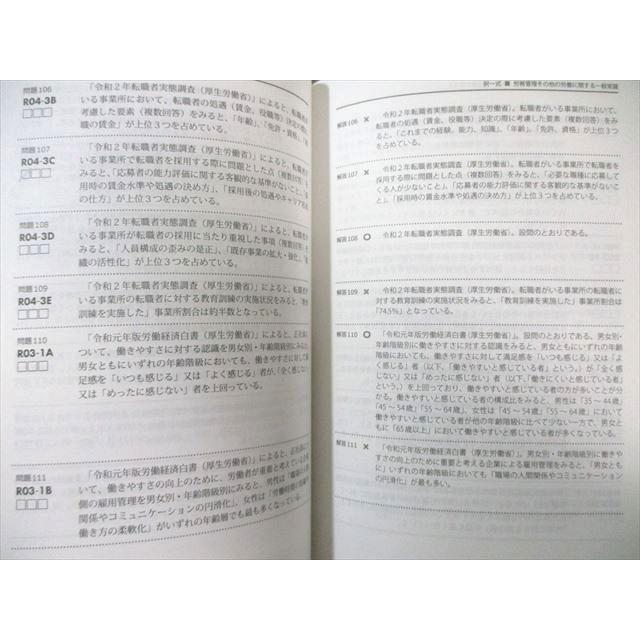 問題106
R04-3B
「令和２年転職者実態調査（厚生労働省）」によると、転職者が
いる事業所において、転職者の処遇（賃金、役職等）決定の際に
考慮した要素（複数回答）をみると、「年齢」、「免許・資格」、「前
職の賃金」が上位３つを占めている。
問題107
R04-3C
「令和２年転職者実態調査（厚生労働省）」によると、転職者が
いる事業所で転職者を採用する際に問題とした点（複数回答）を
みると、「応募者の能力評価に関する客観的な基準がないこと」、「採
用時の賃金水準や処遇の決め方」、「採用後の処遇やキャリア形成
の仕方」が上位３つを占めている。
問題108
R04-3D
「令和２年転職者実態調査（厚生労働省）」によると、転職者が
いる事業所が転職者の採用に当たり重視した事項（複数回答）を
みると、「人員構成の歪みの是正」、「既存事業の拡大・強化」、「組
織の活性化」が上位３つを占めている。
問題109
R04-3E
「令和２年転職者実態調査（厚生労働省）」によると、転職者が
いる事業所の転職者に対する教育訓練の実施状況をみると、「教育
訓練を実施した」事業所割合は約半数となっている。
問題110
R03-1A
「令和元年版労働経済白書（厚生労働省）」によると、正社員に
ついて、働きやすさに対する認識を男女別・年齢階級別にみると、
男女ともにいずれの年齢階級においても、働きやすさに対して満
足感を「いつも感じる」又は「よく感じる」者が、「全く感じない」
又は「めったに感じない」者を上回っている。
問題111
R03-1B
「令和元年版労働経済白書（厚生労働省）」によると、正社員につ
いて、働きやすさの向上のために、労働者が重要と考えている企業
側の雇用管理を男女別・年齢階級別にみると、男性は「職場の人間
関係やコミュニケーションの円滑化」、女性は「労働時間の短縮や
働き方の柔軟化」がいずれの年齢層でも最も多くなっている。
択一式 ■ 労務管理その他の労働に関する一般常識
解答106 × 令和２年転職者実態調査（厚生労働省）。転職者がいる事業所において、
転職者の処遇（賃金、役職等）決定の際に考慮した要素（複数回答）をみ
ると、「これまでの経験、能力、知識」、「年齢」、「免許、資格」が上位３つ
を占めている。
解答107 × 令和２年転職者実態調査（厚生労働省）。転職者がいる事業所で転職者を
採用する際に問題とした点（複数回答）をみると、「必要な職種に応募して
くる人が少ないこと」、「応募者の能力評価に関する客観的な基準がないこ
と」、「採用時の賃金水準や処遇の決め方」が上位３つを占めている。
解答108 ○ 令和２年転職者実態調査（厚生労働省）。設問のとおりである。
解答109 × 令和２年転職者実態調査（厚生労働省）。転職者がいる事業所の転職者に
対する教育訓練の実施状況をみると、「教育訓練を実施した」事業所割合は
「74.5％」となっている。
解答110 ○ 「令和元年版労働経済白書（厚生労働省）」。設問のとおりである。男女別・
年齢階級別に働きやすさに対する認識をみると、男女ともにいずれの年齢
階級においても、働きやすさに対して満足感を「いつも感じる」又は「よ
く感じる」者（以下、働きやすいと感じている者という。）が「全く感じ
ない」又は「めったに感じない」者（以下、「働きにくいと感じている者」
という）を上回っており、働きやすいと感じている者の方が多いことが分
かる。働きやすいと感じている者の構成比をみると、男性は「35～44歳」
「45～54歳」「55～64歳」、女性は「45～54歳」「55～64歳」において
働きやすいと感じている者が他の年齢階級に比べて少ない一方で、男女と
もに「65歳以上」において働きやすいと感じている者が多くなっている。
解答111 × 「令和元年版労働経済白書（厚生労働省）」。男女別・年齢階級別に働きや
すさの向上のために重要と考える企業による雇用管理をみると、「男女とも
に」いずれの年齢階級においても「職場の人間関係やコミュニケーション
の円滑化」が最も多い。